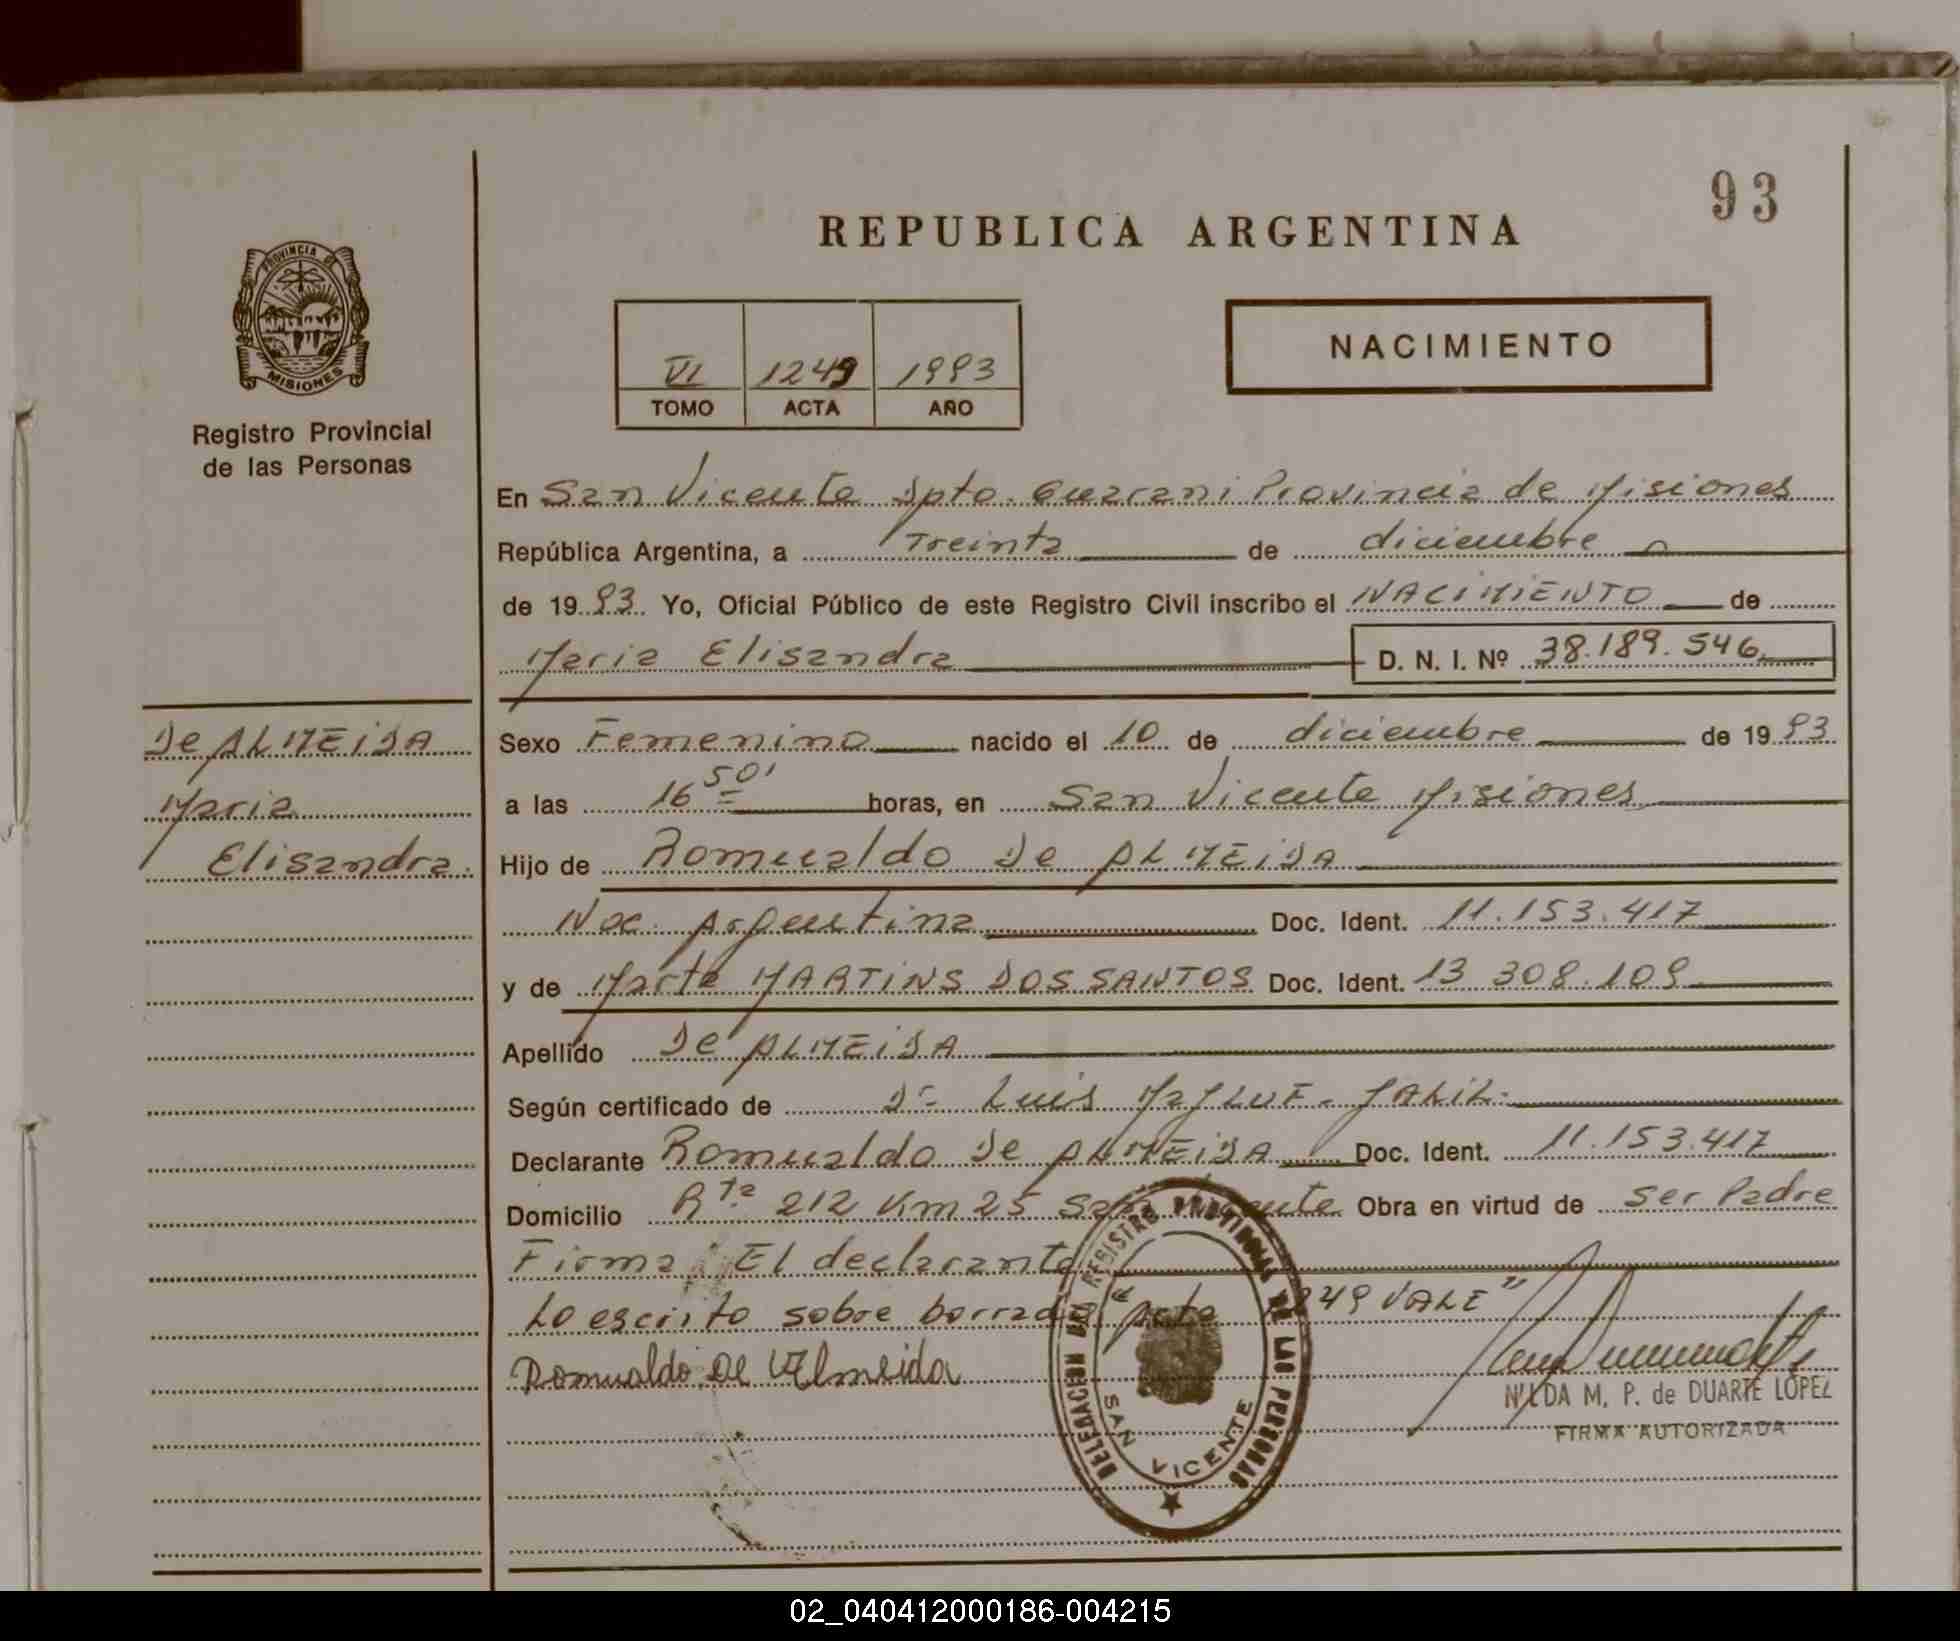 93
REPUBLICA ARGENTINA
PROVINCIA DE
MISIONES
Registro Provincial
de las Personas
VI 1249 1993
TOMO ACTA AÑO
NACIMIENTO
En San Vicente Dpto. Guarani Provincia de Misiones
República Argentina, a Treinta de diciembre
de 1993. Yo, Oficial Público de este Registro Civil inscribo el NACIMIENTO de
Maria Elisandra D. N. I. Nº 38.189.546
De ALMEIDA
Maria
Elisandra.
Sexo Femenino nacido el 10 de diciembre de 1993
a las 16 50' horas, en San Vicente Misiones
Hijo de Romualdo De ALMEIDA
Nac. Argentina Doc. Ident. 11.153.417
y de Marta MARTINS DOS SANTOS Doc. Ident. 13 308.109
Apellido De ALMEIDA
Según certificado de Dr Luis JALIL.
Declarante Romualdo De ALMEIDA Doc. Ident. 11.153.417
Domicilio Rta 212 Km 25 San Vicente Obra en virtud de ser Padre
Firma: El declarante
Lo escrito sobre borrado "Acta 1249 VALE"
Romualdo De Almeida
NILDA M. P. de DUARTE LOPEZ
FIRMA AUTORIZADA
DELEGACION DEL REGISTRO PROVINCIAL DE LAS PERSONAS
SAN VICENTE
02_040412000186-004215